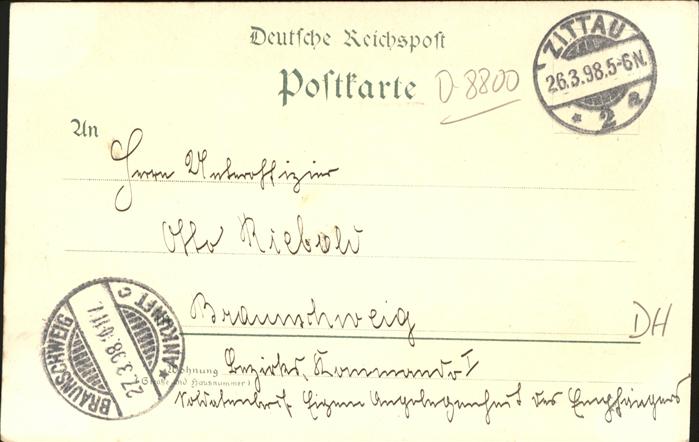 Deutsche Reichspost
Postkarte
D-8800
ZITTAU
26.3.98.5-6N.
* 2 a
An
Herrn Unteroffizier
Otto Riebold
Braunschweig
DH
BRAUNSCHWEIG
27.3.98.10-11V.
ANKUNFT C *
Wohnung
(Straße und Hausnummer)
Bezirks Kommando I
Soldatenbrief. Eigene Angelegenheit des Empfängers